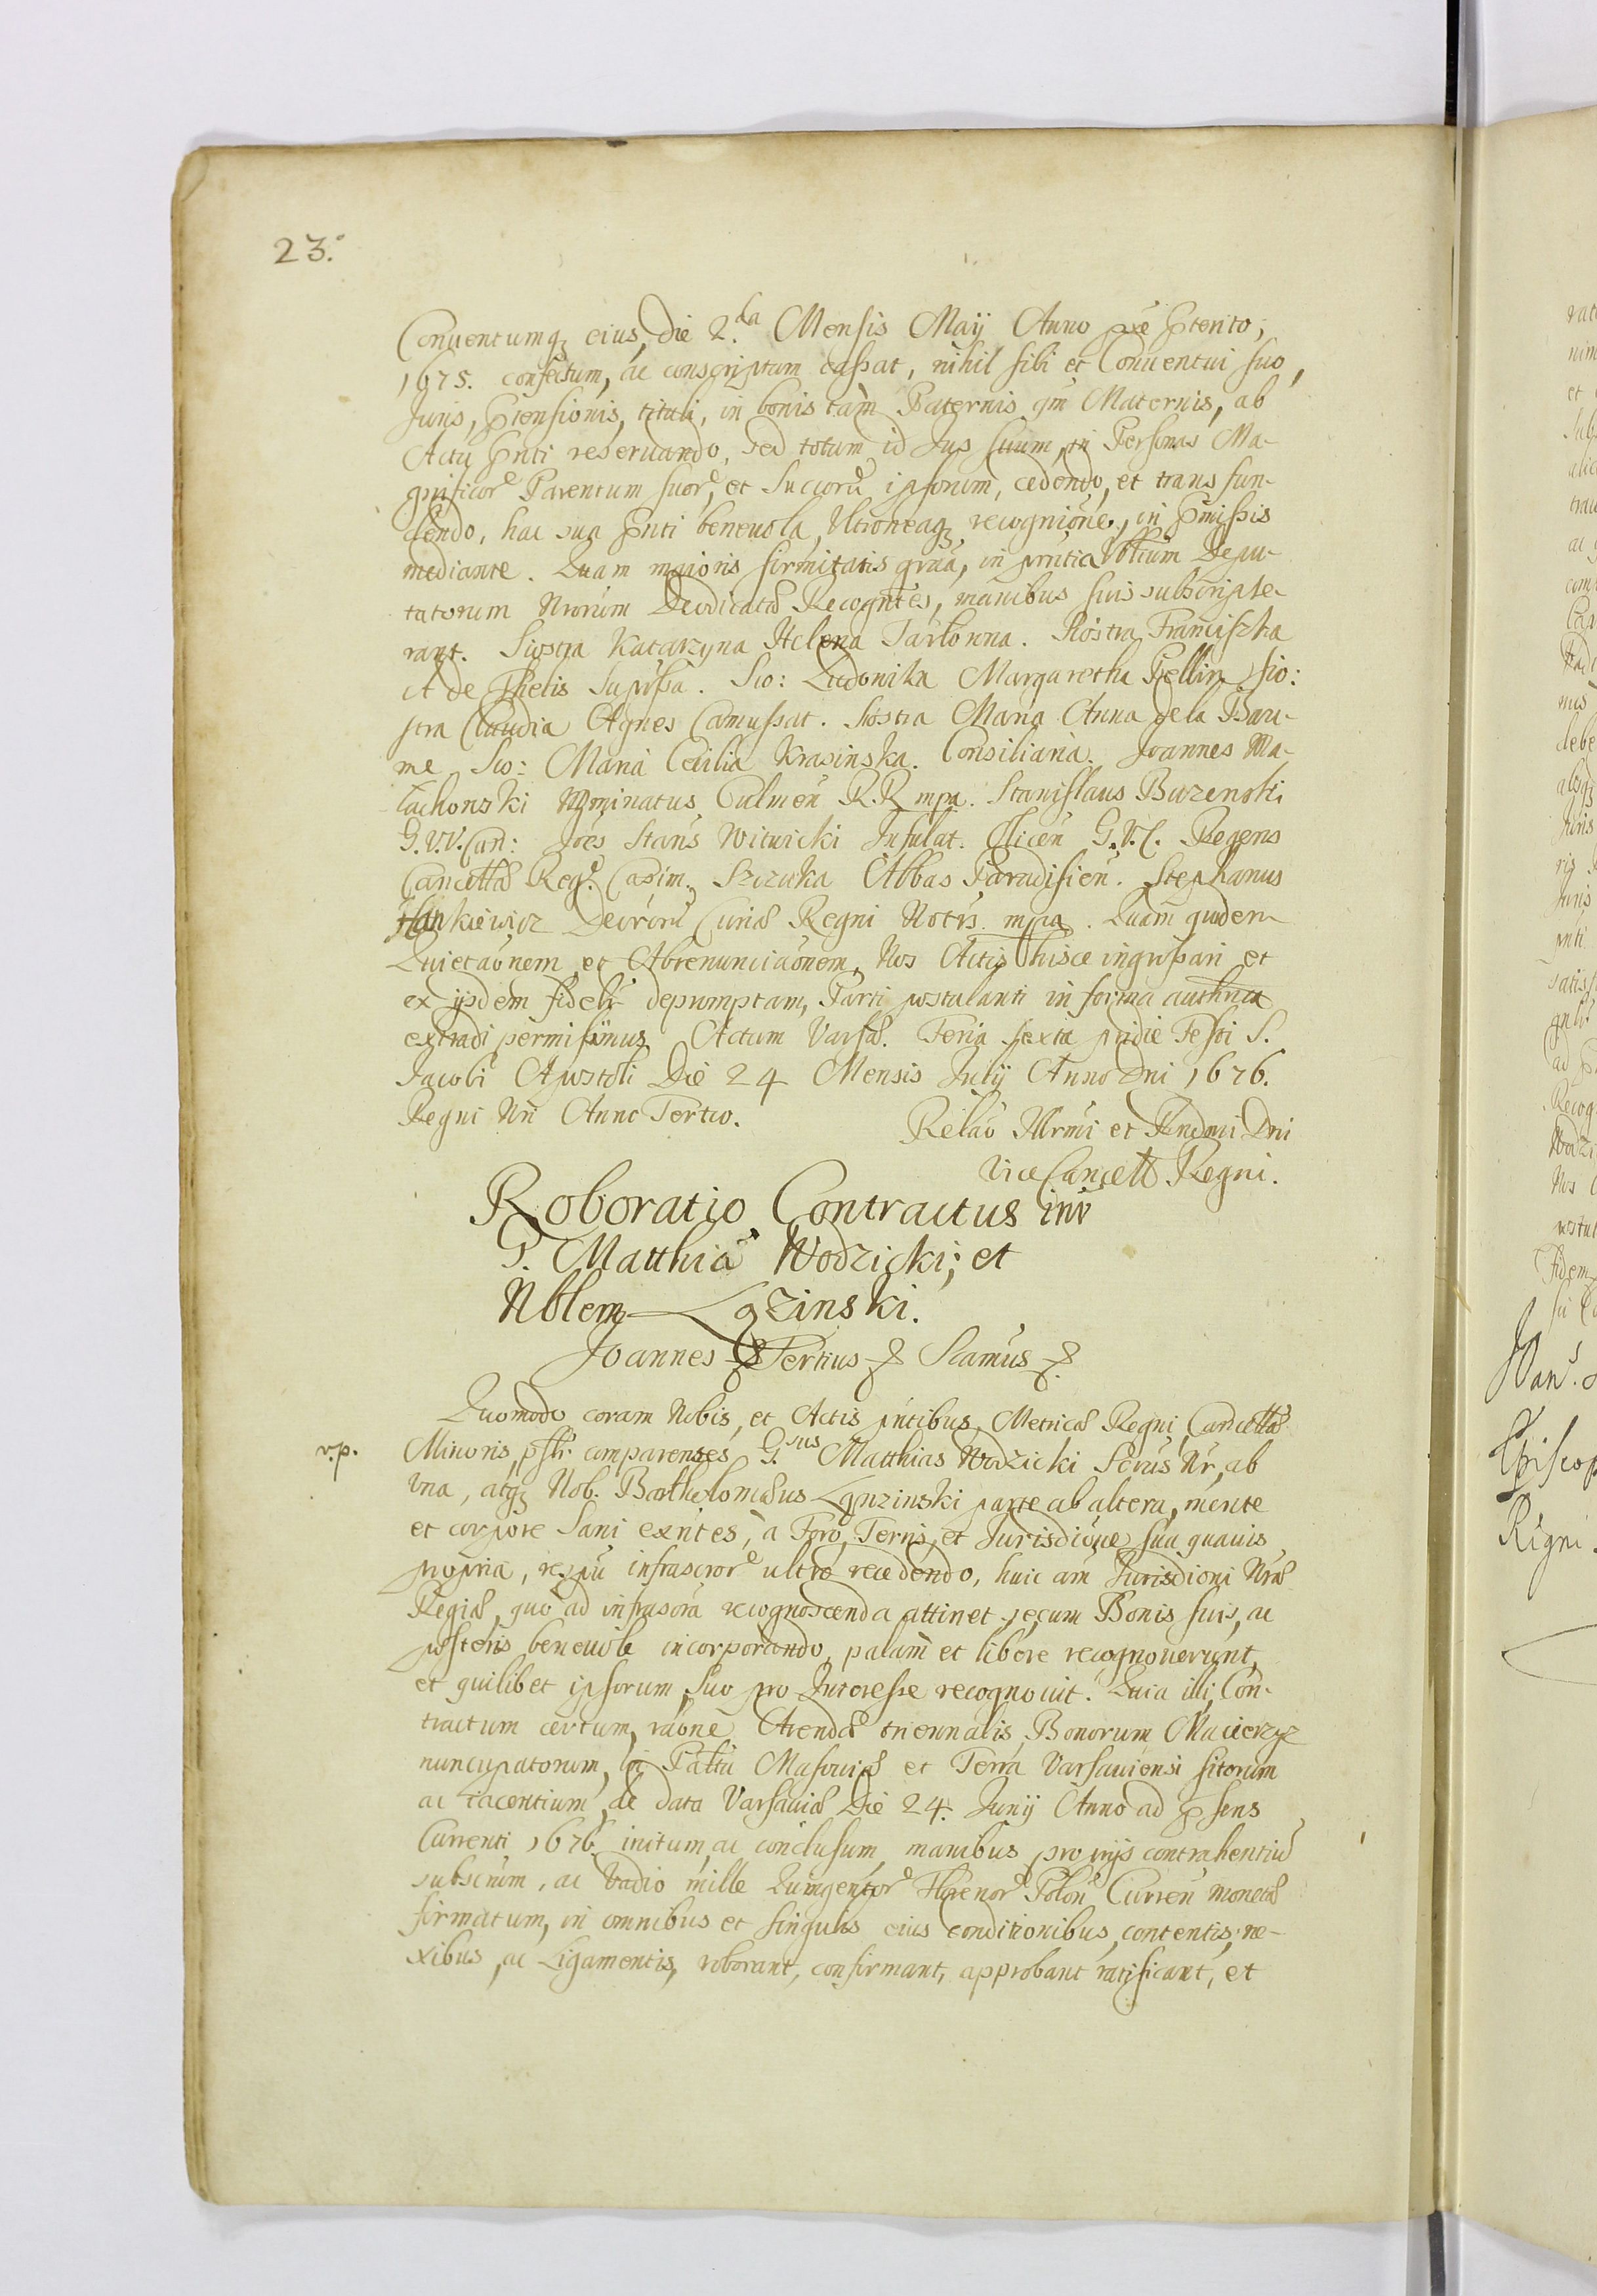 23.
Conuentumq; eius, die 2.da Mensis Maij Anno pxe pterito,
1675. confectum, ac conscriptum cassat, nihil sibi et Conuentui suo,
Juris, ptensionis, tituli, in bonis tam Paternis qm Maternis, ab
Actu pnti reseruando, sed totum id Jus suum, in Personas Ma-
gnificor Parentum suor, et Succorū ipsorum, cedendo, et transfun-
dendo, hac sua pnti beneuola, Vltroneaq; recognione, in pmissis
mediante. Quam maioris firmitatis graa, in pntia Nbłium Depu-
tatorum Nrorum Dedicatæ Recogntes, manibus suis subscripse-
rant. Siostra Katarzyna Helena Tarłowna. Siostra Franciszka
de Thelis Supssa. Sio: Ludowika Margaretha Pellin Sio:
stra Claudia Agnes Camussat. Siostra Maria Anna de la Bau-
me Sio: Maria Cecilia Krasinska. Consiliaria. Joannes Ma-
łachowski Nominatus Culmen R.R mpa. Stanislaus Buzenski
G.V.V. Can: Joes Stans Witwicki Infulat. Olicen G.V.C. Regens
Cancellæ Reg. Casim. Szczuka Abbas Paradisien. Stephanus
Hankiewicz Decrorū Curiæ Regni Notrs mpa. Quam quidem
Quietaonem et Abrenunciaonem, Nos Actis hisce ingrossari et
ex ijsdem fidelr depromptam, Parti postulanti in forma authnca
extradi permisimus. Actum Varsæ. Feria sexta pridie Festi S.
Jacobi Apostoli Die 24 Mensis Julij Anno Dni 1676.
Regni Nri Anno Tertio.
Relao Illrmi et Rndmi Dni
Vice Cancell Regni.
Roboratio Contractus intr
G. Matthiā Wodzicki; et
Nblem Lgzinski.
Joannes Tertius Scamus
Quomodo coram Nobis, et Actis pntibus Metricæ Regni Cancellæ
r.p.
Minoris, pslr comparentes G.sus Matthias Wodzicki Scrus Nr, ab
Vna, atq; Nob. Bartholomæus Lgnzinski parte ab altera, mente
et corpore Sani exntes, a Foro, Terris, et Jurisdione sua quauis
propria, respū infrascror ultro recedendo, huic am Jurisdioni Nræ
Regiæ, quo ad infrascra recognoscenda attinet, se cum Bonis suis, ac
posteris beneuole incorporando, palam et libere recognouerunt,
et quilibet ipsorum, Suo pro Interesse recognouit. Quia illi, Con-
tractum certum, raone Arendæ triennalis, Bonorum Macierzyz
nuncupatorum, in Pałtu Masouiæ et Terra Varsauiensi sitorum
ac iacentium, de data Varsauiæ Die 24. Junij Anno ad psens
Currenti 1676 initum, ac conclusum, manibus proprijs contrahentiū
subscrum, ac Vadio mille Quingentor Florenor Polon Curren monetæ
firmatum, in omnibus et singulis eius conditionibus, contentis, ne-
xibus, ac Ligamentis, roborant, confirmant, approbant ratificant, et